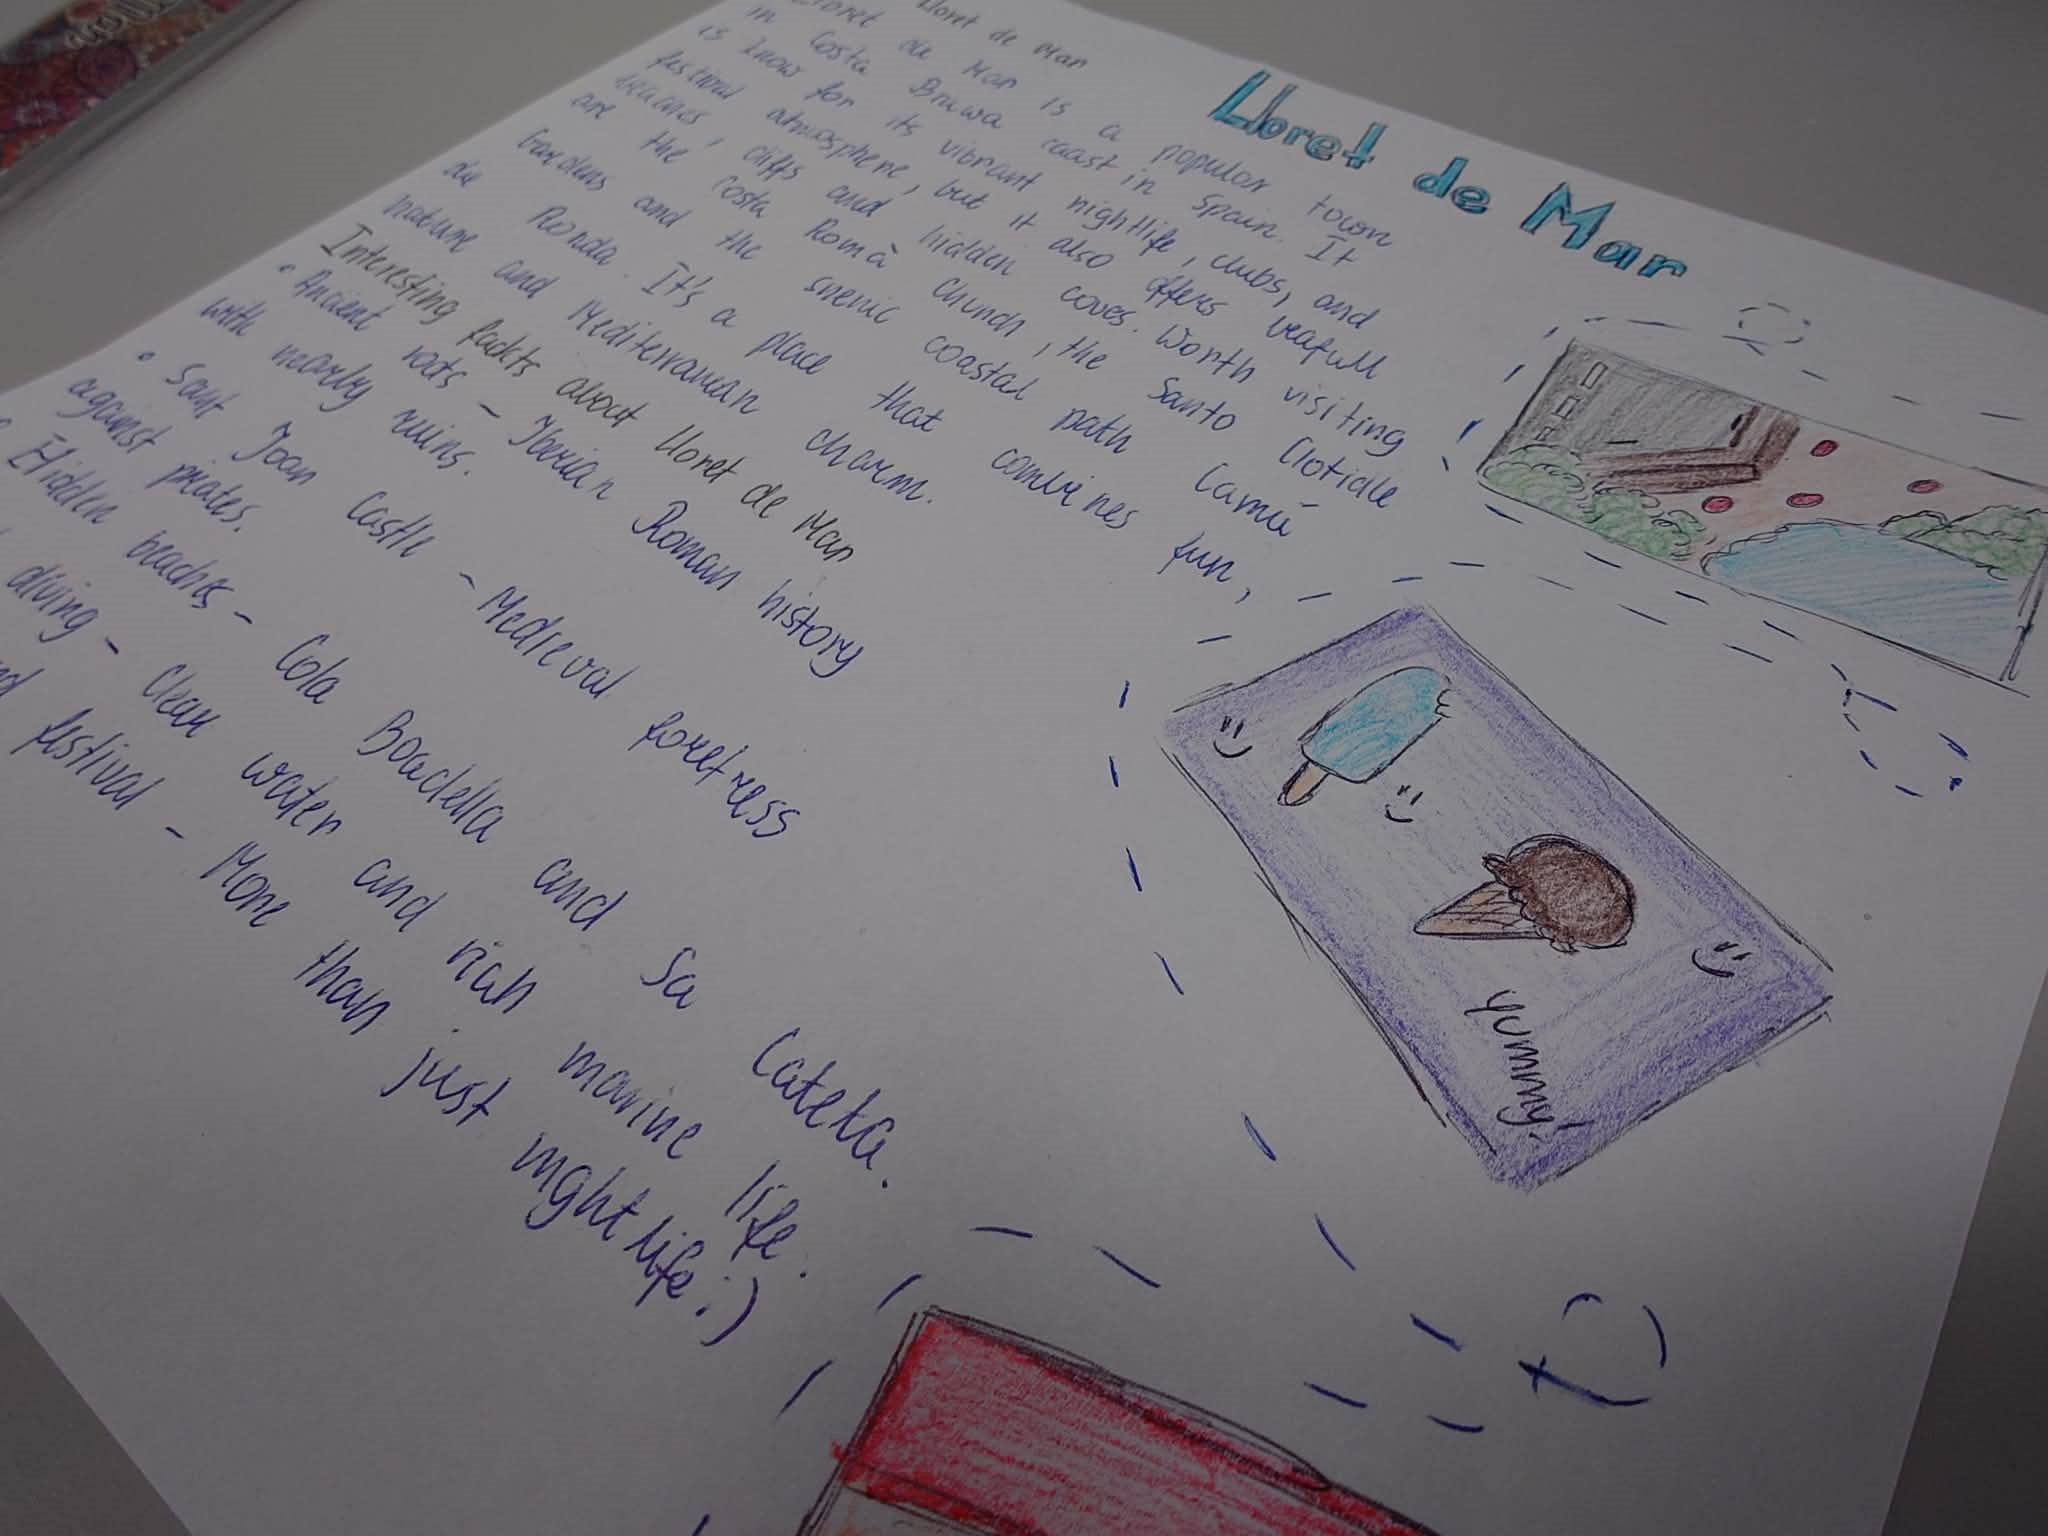 Lloret de Mar
Lloret de Mar
Lloret de Mar is a popular town
in Costa Bruwa coast in Spain. It
is know for its vibrant nightlife, clubs, and
festival atmosphere, but it also offers beafull
beaches, cliffs and hidden coves. Worth visiting
are the Costa Romà Church, the Santo Clotidle
Gardens and the scenic coastal path Camú
de Ronda. It's a place that combines fun,
nature and Mediterranan charm.
Interesting fackts about Lloret de Mar
• Ancient roots - Iberian Roman history
with nearby ruins.
• Sant Joan Castle - Medieval foretress
against pirates.
• Hidden beaches - Cola Boadella and Sa Cateta.
diving - Clear water and rich marine life.
festival - More than just nightlife :)
Yummy!